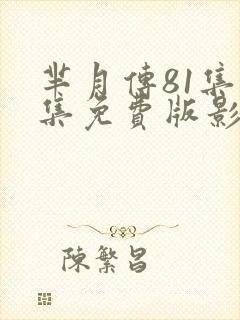 芈月傳81集
集免費版影
陳繁昌